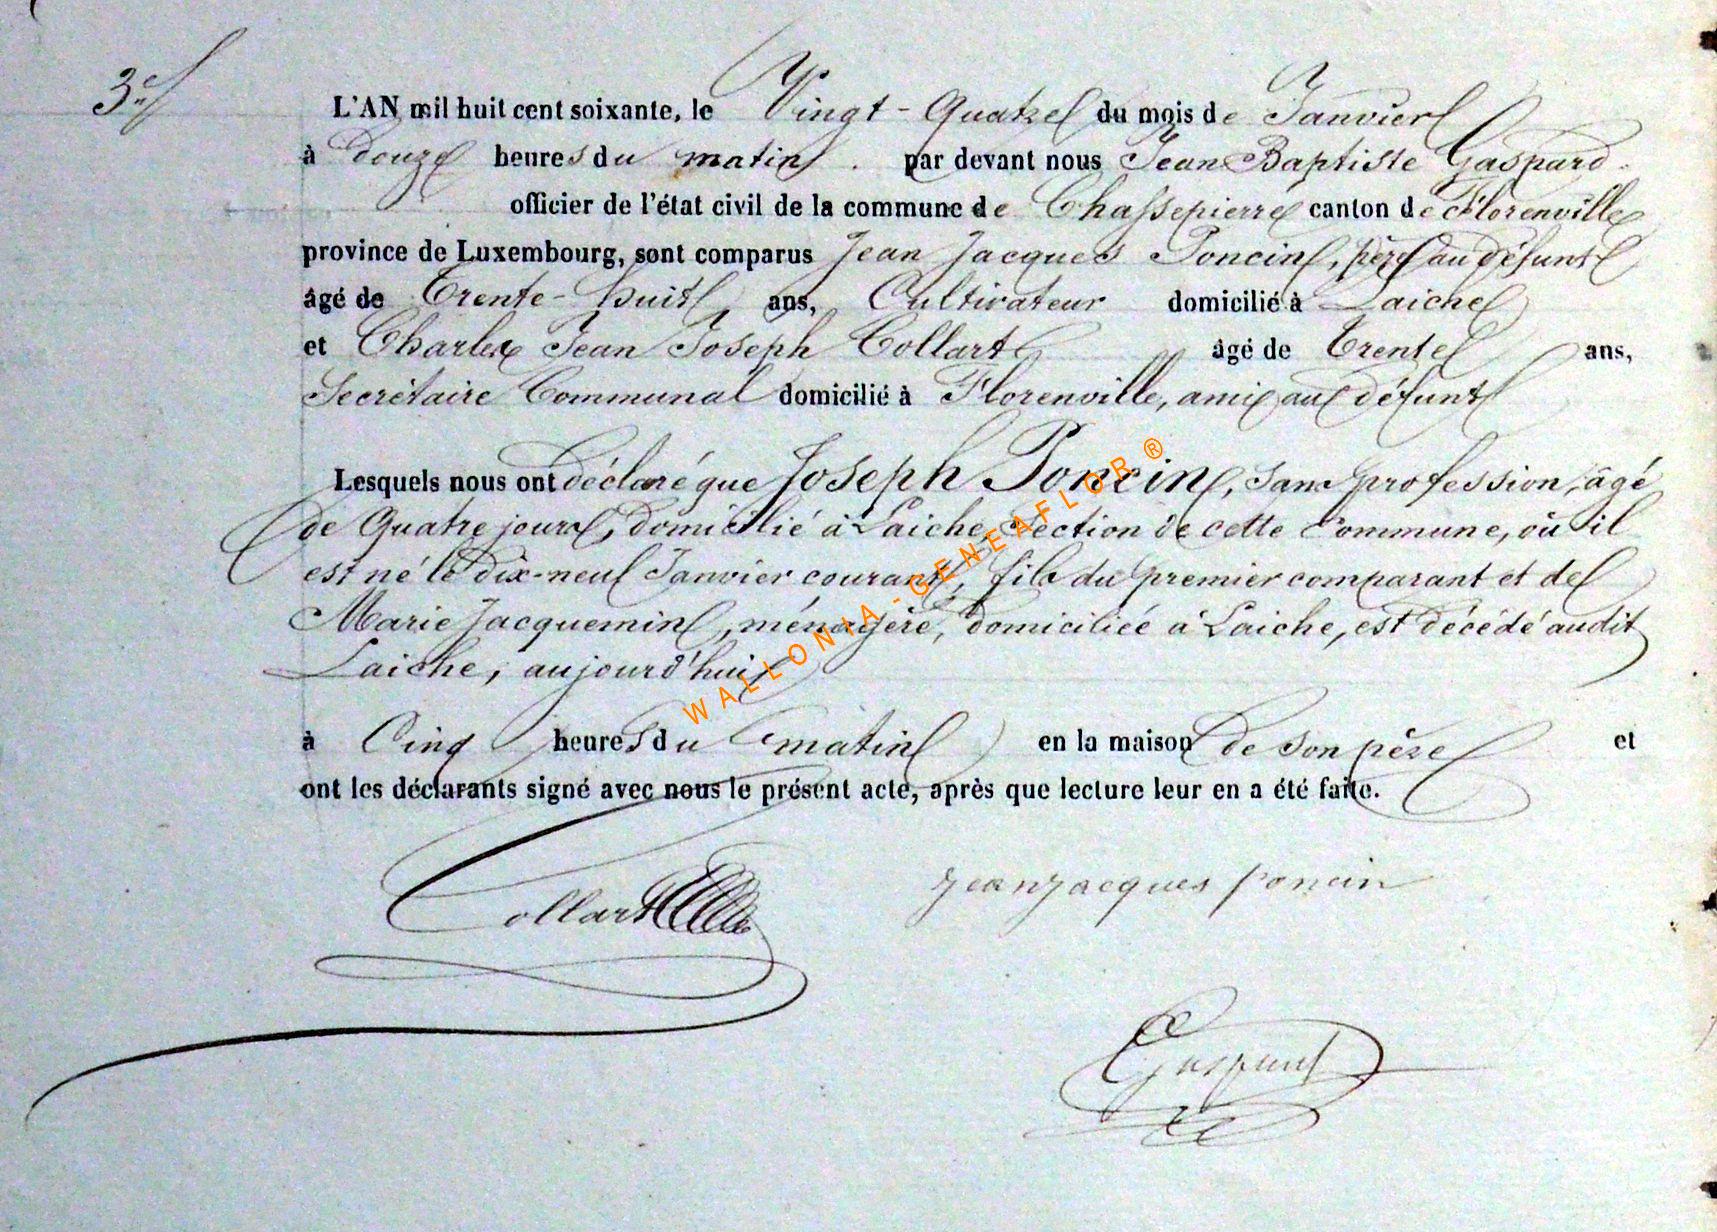 3e
L'AN mil huit cent soixante, le Vingt-Quatre du mois de Janvier
à douze heures du matin . par devant nous Jean Baptiste Gaspard
officier de l'état civil de la commune de Chassepierre canton de Florenville
province de Luxembourg, sont comparus Jean Jacques Poncin, père au défunt
âgé de Trente-huit ans, Cultivateur domicilié à Laiche
et Charles Jean Joseph Collart âgé de Trente ans,
Secrétaire Communal domicilié à Florenville, ami au défunt
Lesquels nous ont déclaré que Joseph Poncin, sans profession, âgé
de Quatre jours, domicilié à Laiche, section de cette Commune, où il
est né le dix-neuf Janvier courant, fils du premier comparant et de
Marie Jacquemin, ménagère, domiciliée à Laiche, est décédé audit
Laiche, aujourd'hui
à Cinq heures du matin en la maison de son père et
ont les déclarants signé avec nous le présent acte, après que lecture leur en a été faite.
Collart
jean jacques poncin
Gaspard
WALLONIA-GENEAFLOR®